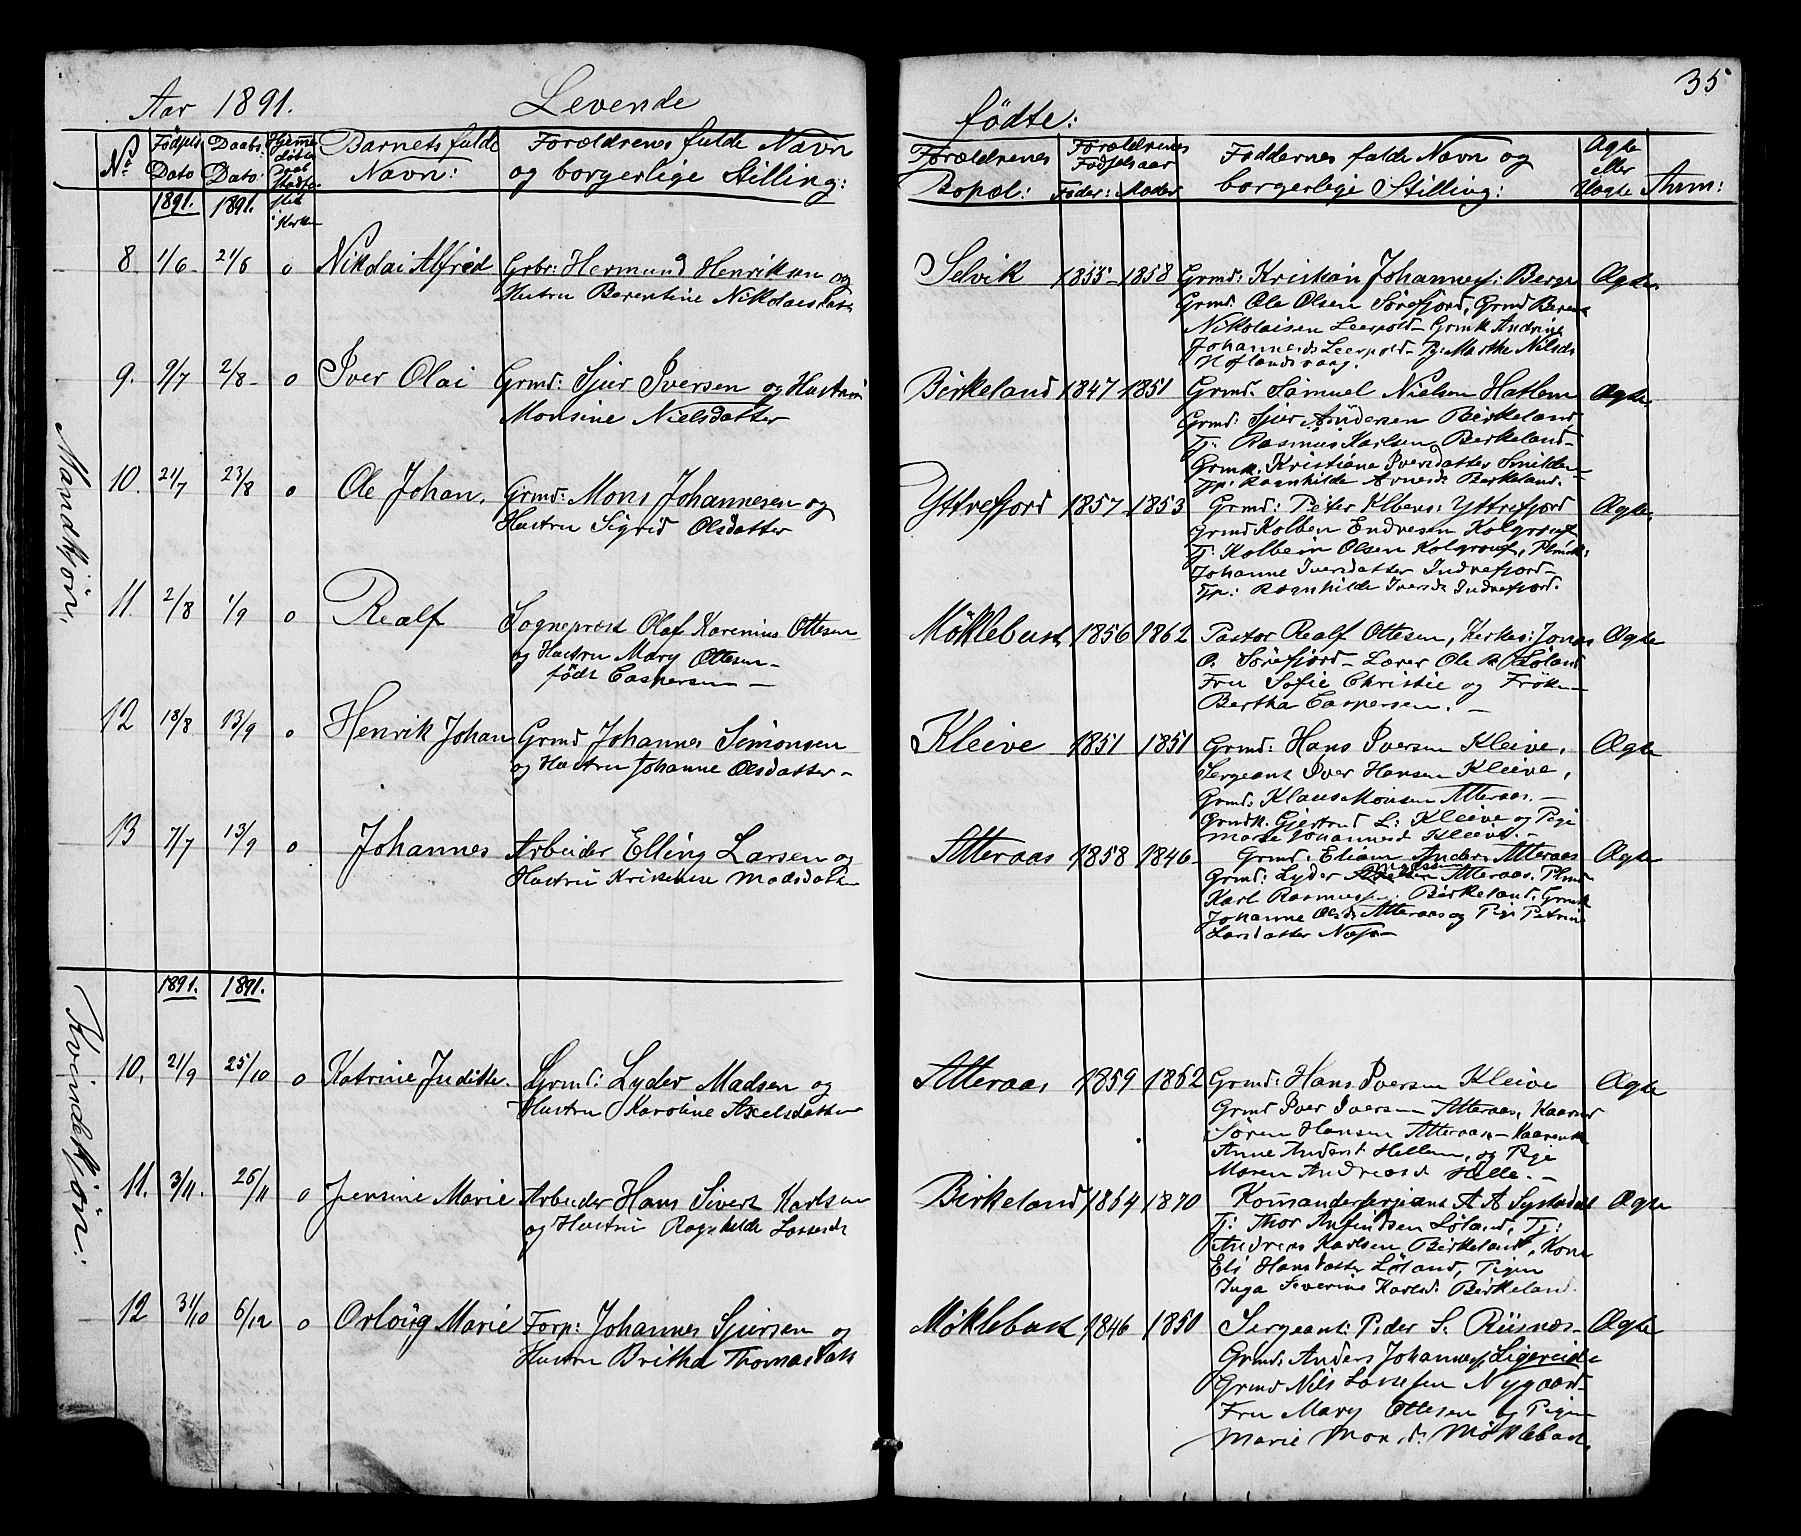 Aar 1891. Levende
fødte: 35
No Fødsels Dato 1891. Daabs: Dato: 1891. Barnets fulde Navn: Forældrenes fulde Navn og borgerlige Stilling:
Forældrenes Bopæl: Forældrenes Fødselsaar Fader: Moder Faddernes fulde Navn og borgerlige Stilling: Ægte eller Uægte Anm:
Mandkjön.
8. 1/6 21/6 o Nikolai Alfred Grbr: Hermund Henriksen og
Hustru Berentine Nikolaisdatt
Selvik 1855 - 1858 Grmd: Kristian Johannes: Berge Ægte.
Grmd Ole Olsen Sørefjord, Grmd Berent
Nikolaisen Leerpold - Grmk Andrine
Johannesd Leerpold - Pg: Marthe Nilsd:
Hoflandsvaag.
9. 9/7 2/8 - o Iver Olai Grmd: Sjur Iversen og Hustru
Monsine Nielsdatter
Birkeland 1847 - 1851 Grmd. Samuel Nielsen Hatlem Ægte.
Grmd: Sjur Andersen Birkeland,
Tj: Rasmus Karlsen Birkeland -
Grmk. Kristiane Iversdatter Smilden -
Tp: Ragnhilde Arnesd: Birkeland.
10. 24/7 23/8 o Ole Johan. Grmd: Mons Johannesen og
Hustru Sigrid Olsdatter
Yttrefjord 1857 - 1853 Grmd: Peter Elbens: Yttrefjord Ægte.
Grmd Kolben Endresen Kolgrouf
Tj: Kolbein Olsen Kolgrouf, Plmk:
Johanne Iversdatter Indrefjord -
Tp: Ragnhilde Iversd: Indrefjord.
11. 2/8 1/9 o Realf Sogneprest Olaf Karenius Ottesen
og Hustru Mary Ottesen -
født Caspersen -
Møklebust 1856 - 1862 Pastor Realf Ottesen, Kirkes: Jonas Ægte
O. Sørefjord - Lærer Ole R. Løland
Fru Sofie Christie og Frøken
Bertha Caspersen. -
12 18/8 13/9 o Henrik Johan Grmd Johannes Simonsen
og Hustru Johanne Olsdatter -
Kleive 1851 1851 Grmd: Hans Iversen Kleive, Ægte
Sergeant Iver Hansen Kleive,
Grmd: Klaus Monsen Atteraas. -
Grmdk. Gjertrud L: Kleive og Pige
Marte Johannesd Kleive. -
13 7/7 13/9 o Johannes Arbeider Elling Larsen og
Hustru Kristense Madsdatter
Atteraas 1858 1846 - Grmd: Eliam Anders: Atteraas Ægte
Grmd: Lyder Madsen Atteraas, Plmd
Karl Rasmuss. Birkeland, Grmk
Johanne Olsd: Atteraas og Pige Petrine
Larsdatter Næss -
1891. 1891.
Kvindekjön.
10. 21/9 25/10 o Katrine Juditte. Grmd: Lyder Madsen og
Hustru Karoline Axelsdatter
Atteraas 1859 1862 Grmd: Hans Iversen Kleive Ægte
Grmd Iver Iversen Atteraas, Kaarmd
Søren Hansen Atteraas - Kaarenk
Anne Andersd Hellem, og Pige
Maren Andreasd Helle. -
11. 3/11. 26/11 o Jensine Marie Arbeider Hans Sivert Karlsen
og Hustru Ragnhilde Larsd
Birkeland 1864 1870 Komandersergiant A A Systadal Ægte
Tj: Thor Anfindsen Løland, Tj:
Andreas Karlsen Birkeland, Kone
Eli Hansdatter Løland, Pigen
Inga Severine Karlsd: Birkeland.
12 31/10 6/12 o Orloug Marie Forp: Johannes Sjursen og
Hustru Britha Thomasdatt
Møklebust 1846 1850 Sergeant: Peder S. Risnæs - Ægte
Grmd: Anders Johannes: Ligereide
Grmd Nils Lassesen Nygaard -
Fru Mary Ottesen og Pigen
Marie Mon.d: Møklebust.